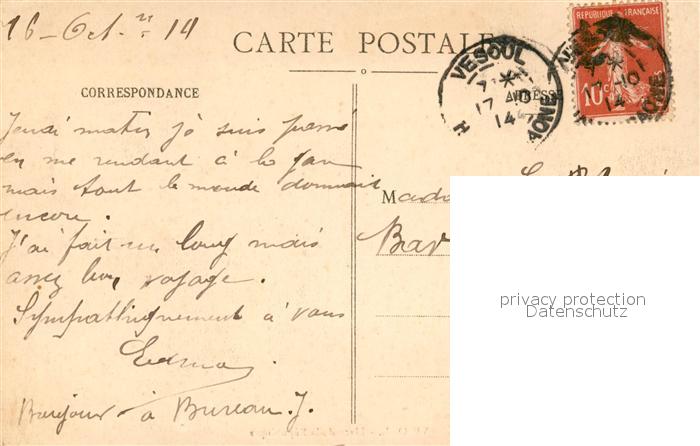 16 - Oct. 14
CARTE POSTALE
CORRESPONDANCE
ADRESSE
REPUBLIQUE FRANÇAISE
10c
VESOUL
17-10
14
Hte SAONE
Jeudi matin je suis passé
en me rendant à la gare
mais tout le monde dormait
encore.
J'ai fait un long mais
assez bon voyage.
Sympathiquement à vous
Bonjour à Bureau. J.
Mada
Bar
privacy protection
Datenschutz